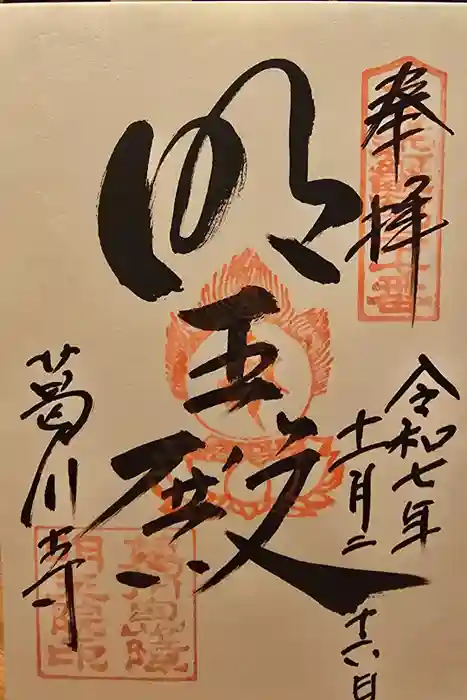 奉拝
令和七年
十一月二
十六日
明王殿
葛川寺